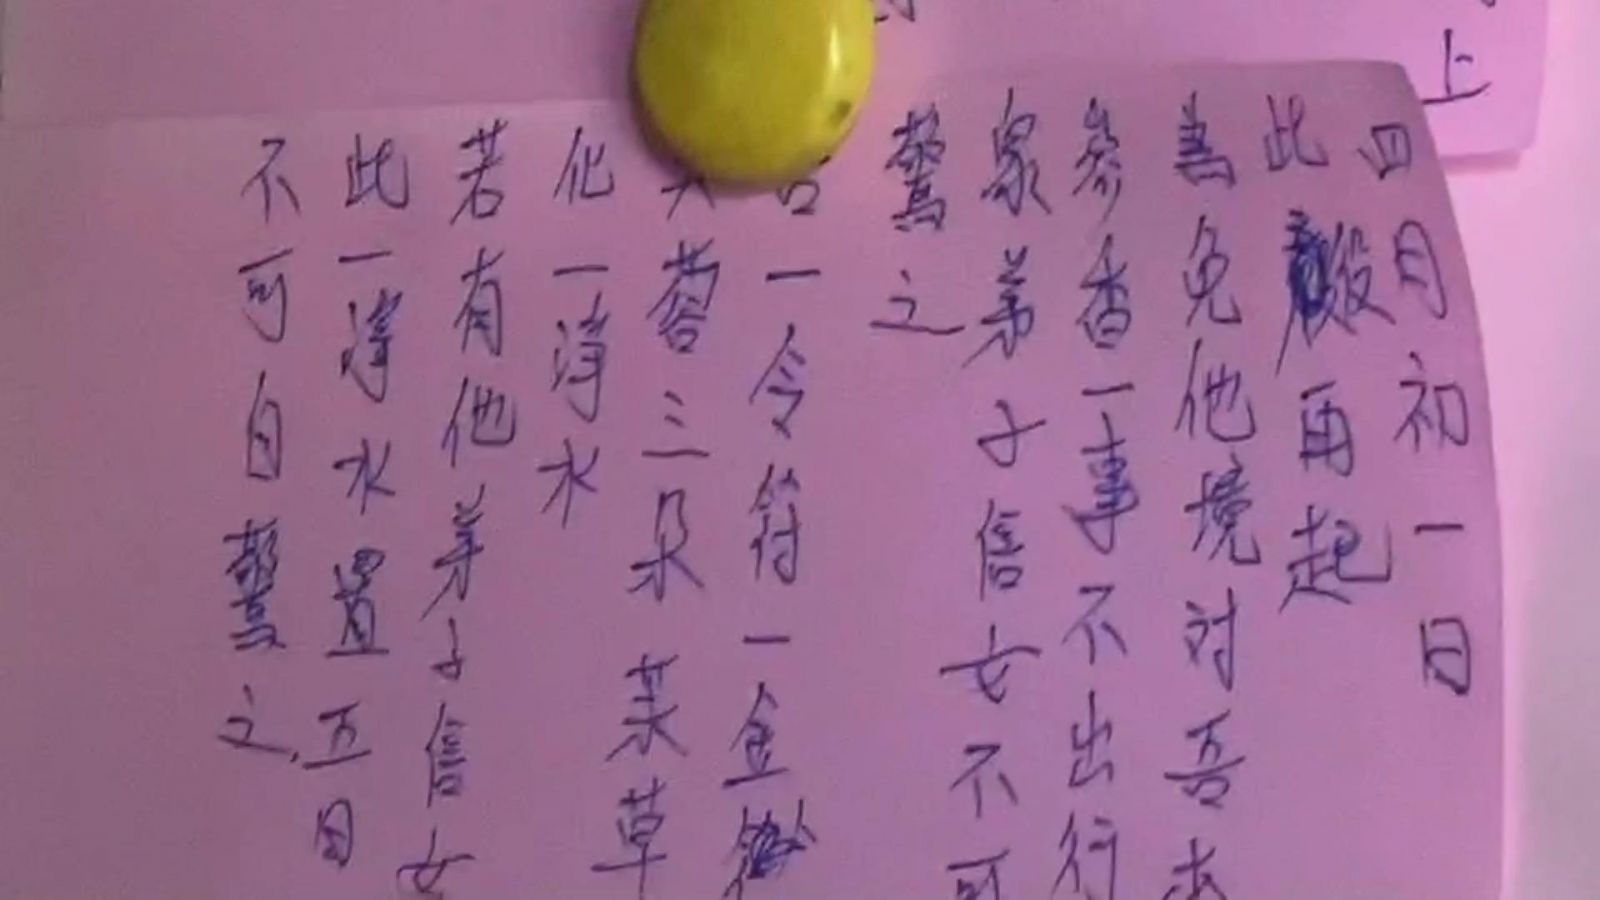 上
四月初一日
此殿再起
為免他境对吾
參香一事不出行
衆弟子信女不可
驚之
一令符一金
蓉三朵菉草
化一淨水
若有他弟子信女
此一淨水置五日
不可自驚之